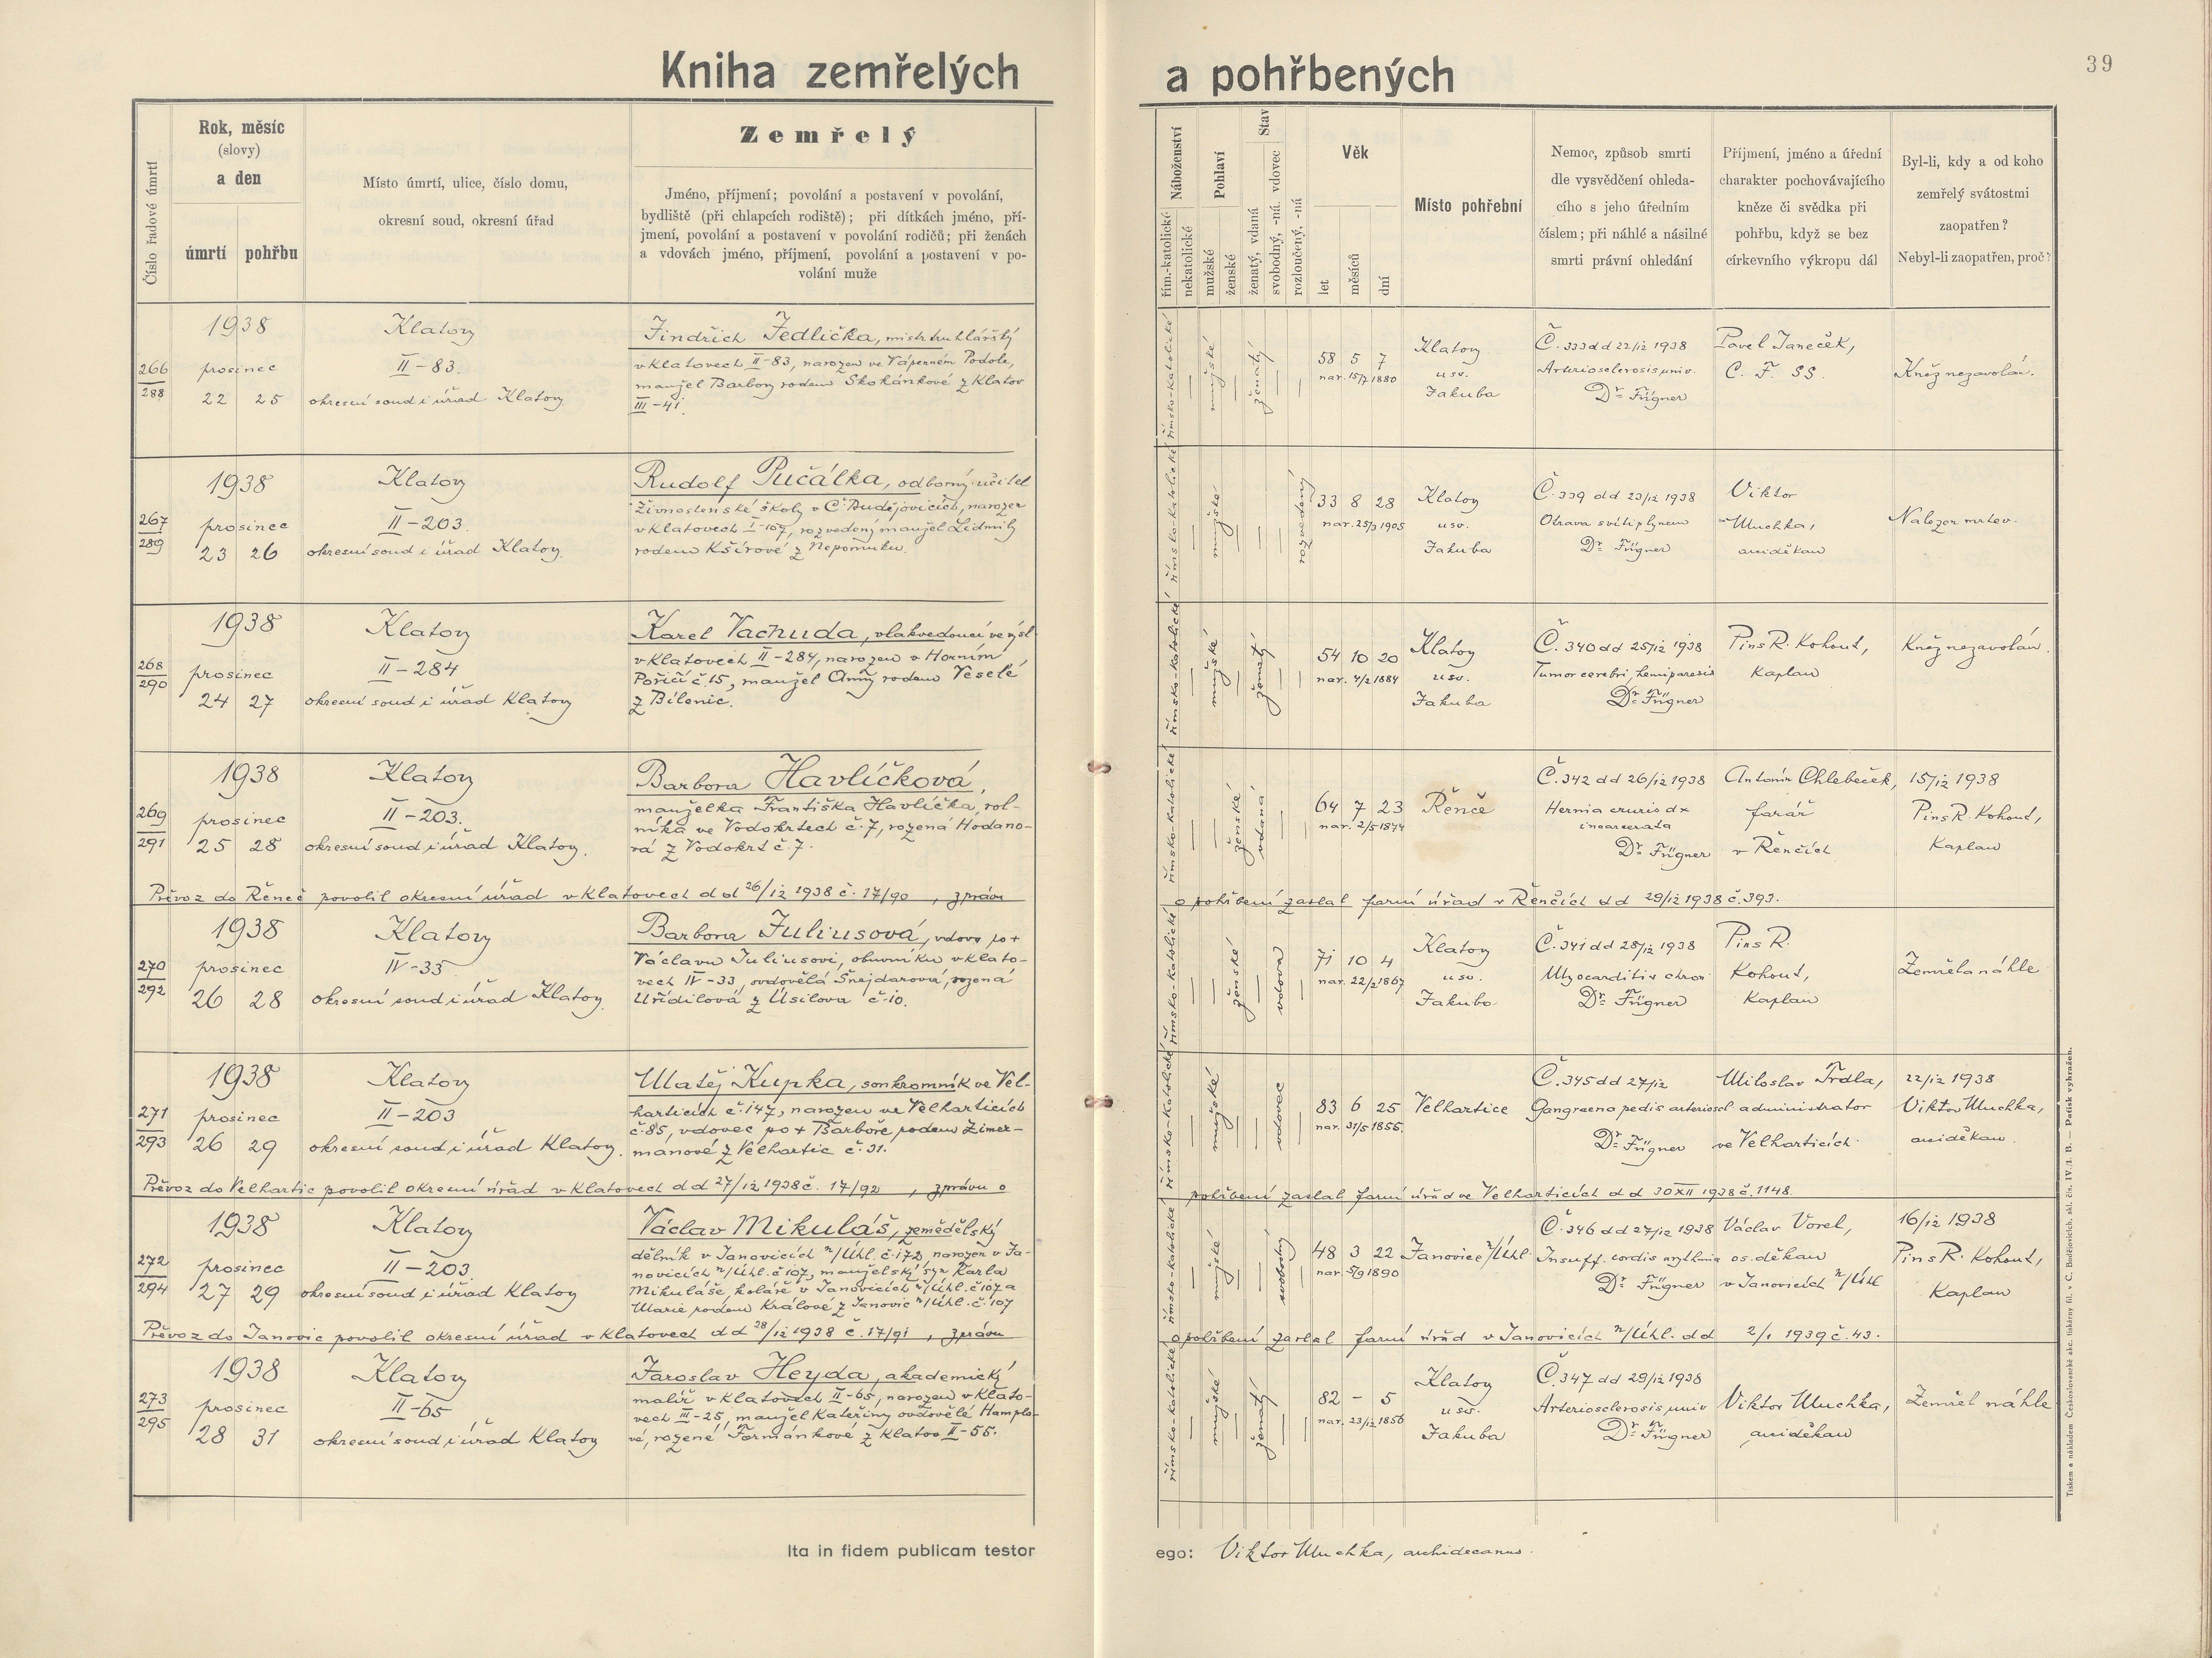 Kniha zemřelých a pohřbených
39
Číslo řadové úmrtí
Rok, měsíc
(slovy)
a den
úmrtí pohřbu
Místo úmrtí, ulice, číslo domu,
okresní soud, okresní úřad
Zemřelý
Jméno, příjmení; povolání a postavení v povolání,
bydliště (při chlapcích rodiště); při dítkách jméno, pří-
jmení, povolání a postavení v povolání rodičů; při ženách
a vdovách jméno, příjmení, povolání a postavení v po-
volání muže
Náboženství
řím.-katolické
nekatolické
Pohlaví
mužské
ženské
Stav
ženatý, vdaná
svobodný, -ná, vdovec
rozloučený, -ná
Věk
let
měsíců
dní
Místo pohřební
Nemoc, způsob smrti
dle vysvědčení ohleda-
cího s jeho úředním
číslem; při náhlé a násilné
smrti právní ohledání
Příjmení, jméno a úřední
charakter pochovávajícího
kněze či svědka při
pohřbu, když se bez
církevního výkropu dál
Byl-li, kdy a od koho
zemřelý svátostmi
zaopatřen?
Nebyl-li zaopatřen, proč?
266
288
1938
prosinec
22 25
Klatovy
II-83.
okresní soud i úřad Klatovy.
Jindřich Jedlička, mistr truhlářský
v Klatovech II-83, narozen ve Podole,
manžel Barbory rodem Skokánkové z Klatov
III-41.
římsko-katolické
mužské
ženatý
58 5 7
nar. 15/7 1880
Klatovy
u sv.
Jakuba
Č. 333 dd 22/12 1938
Arteriosclerosis univ.
Dr. Fügner
Pavel Janeček,
C. F. SS.
Kněz nezavolán.
267
289
1938
prosinec
23 26
Klatovy
II-203.
okresní soud i úřad Klatovy.
Rudolf Pučálka, odborný učitel
živnostenské školy v Č. Budějovicích, narozen
v Klatovech I-107, rozvedený manžel Lidmily
rodem Kšírové z Nepomuku.
římsko-katolické
mužské
rozvedený
33 8 28
nar. 25/3 1905
Klatovy
u sv.
Jakuba
Č. 339 dd 23/12 1938
Otrava svítiplynem
Dr. Fügner
Viktor
Muchka,
arciděkan
Nalezen mrtev.
268
290
1938
prosinec
24 27
Klatovy
II-284
okresní soud i úřad Klatovy
Karel Vachuda, vlakvedoucí ve výsl.
v Klatovech II-284, narozen v Horním
Poříčí č. 15, manžel Anny rodem Veselé
z Bílenic.
římsko-katolické
mužské
ženatý
54 10 20
nar. 4/2 1884
Klatovy
u sv.
Jakuba
Č. 340 dd 25/12 1938
Tumor cerebri, hemiparesis
Dr. Fügner
Pius R. Kohout,
Kaplan
Kněz nezavolán.
269
291
1938
prosinec
25 28
Klatovy
II-203.
okresní soud i úřad Klatovy.
Barbora Havlíčková,
manželka Františka Havlíčka, rol-
níka ve Vodokrtech č. 7, rozená Hodano-
vá z Vodokrt č. 7.
římsko-katolické
ženské
vdaná
64 7 23
nar. 2/5 1874
Řenče
Č. 342 dd 26/12 1938
Hernia cruris dx
incarcerata
Dr. Fügner
Antonín Chlebeček,
farář
v Řenčích
15/12 1938
Pius R. Kohout,
Kaplan
Převoz do Řenč povolil okresní úřad v Klatovech dd 26/12 1938 č. 17/90, zprávu
o pohřbení zaslal farní úřad v Řenčích dd 29/12 1938 č. 393.
270
292
1938
prosinec
26 28
Klatovy
IV-33
okresní soud i úřad Klatovy.
Barbora Juliusová, vdova po +
Václavu Juliusovi, obuvníku v Klato-
vech IV-33, ovdovělá Šnejdarová, rozená
Uřídilová z Úsilova č. 10.
římsko-katolické
ženské
vdova
71 10 4
nar. 22/2 1867
Klatovy
u sv.
Jakuba
Č. 341 dd 28/12 1938
Myocarditis chron
Dr. Fügner
Pius R.
Kohout,
Kaplan
Zemřela náhle
271
293
1938
prosinec
26 29
Klatovy
II-203
okresní soud i úřad Klatovy.
Matěj Kupka, soukromník ve Vel-
harticích č. 147, narozen ve Velharticích
č. 85, vdovec po + Barboře rodem Zimer-
manové z Velhartic č. 31.
římsko-katolické
mužské
vdovec
83 6 25
nar. 31/5 1855.
Velhartice
Č. 345 dd 27/12
Gangraena pedis arteriosel
Dr. Fügner
Miloslav Trdla,
administrator
ve Velharticích
22/12 1938
Viktor Muchka,
arciděkan.
Převoz do Velhartic povolil okresní úřad v Klatovech dd 27/12 1938 č. 17/92, zprávu o
pohřbení zaslal farní úřad ve Velharticích dd 30 XII 1938 č. 1148.
272
294
1938
prosinec
27 29
Klatovy
II-203.
okresní soud i úřad Klatovy
Václav Mikuláš, zemědělský
dělník v Janovicích n/Úhl. č. 172, narozen v Ja-
novicích n/Úhl. č. 107, manželský syn Karla
Mikuláše, koláře v Janovicích n/Úhl. č. 107 a
Marie rodem Králové z Janovic n/Úhl. č. 107
římsko-katolické
mužské
svobodný
48 3 22
nar. 5/9 1890
Janovice n/Úhl.
Č. 346 dd 27/12 1938
Insuff. cordis arythmia
Dr. Fügner
Václav Vorel,
os. děkan
v Janovicích n/Úhl
16/12 1938
Pius R. Kohout,
Kaplan
Převoz do Janovic povolil okresní úřad v Klatovech dd 28/12 1938 č. 17/91, zprávu
o pohřbení zaslal farní úřad v Janovicích n/Úhl. dd 2/1 1939 č. 43.
273
295
1938
prosinec
28 31
Klatovy
II-65
okresní soud i úřad Klatovy
Jaroslav Heyda, akademický
malíř v Klatovech II-65, narozen v Klato-
vech III-25, manžel Kateřiny ovdovělé Hamplo-
vé, rozené Formánkové z Klatov II-55.
římsko-katolické
mužské
ženatý
82 - 5
nar. 23/12 1856
Klatovy
u sv.
Jakuba
Č. 347 dd 29/12 1938
Arteriosclerosis univ
Dr. Fügner
Viktor Muchka,
arciděkan
Zemřel náhle
Ita in fidem publicam testor ego: Viktor Muchka, archidecanus.
Tiskem a nákladem Československé akc. tiskárny fil. v Č. Budějovicích, skl. čís. IV./1. B. — Patisk vyhražen.